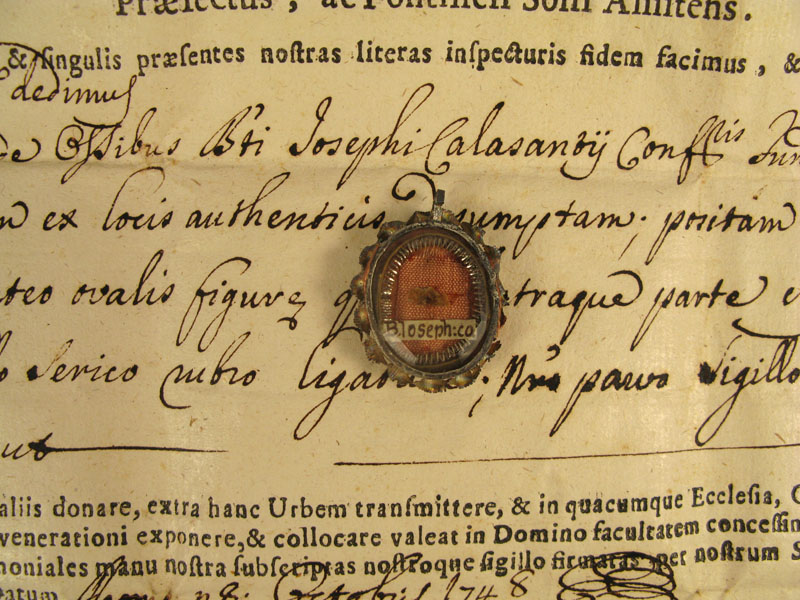 Præfectus, ac Pontificii Solii Assistens.
& singulis præsentes nostras literas inspecturis fidem facimus, &
dedimus
de Ossibus B'ti Josephi Calasantij Conf
ex locis authenticis sumptam; positam
ovalis figuræ traque parte
Serico rubro ligat ; Nr'o parvo Sigillo
aliis donare, extra hanc Urbem transmittere, & in quacumque Ecclesia,
venerationi exponere, & collocare valeat in Domino facultatem concessim
moniales manu nostra subscriptas nostroque sigillo firmatas per nostrum S
Datum Octobris 1748
B. Ioseph: ca